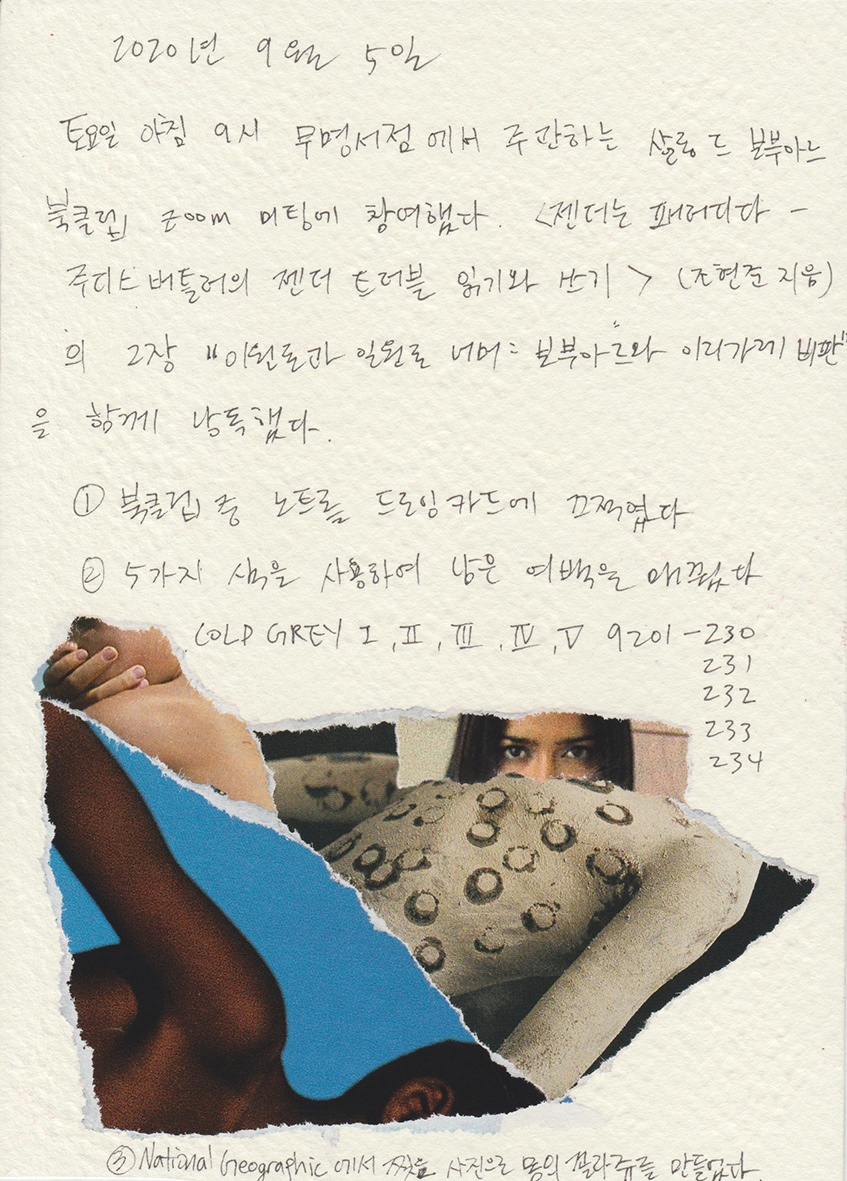 2020년 9월 5일
토요일 아침 9시 무명서점에서 주관하는 살롱 드 보부아르
북클럽 zoom 미팅에 참여했다. <젠더는 패러디다 -
주디스 버틀러의 젠더 트러블 읽기와 쓰기> (조현준 지음)
의 2장 "이원론과 일원론 너머: 보부아르와 이리가레 비판"
을 함께 낭독했다.
① 북클럽 중 노트를 드로잉카드에 끄적였다
② 5가지 색을 사용하여 남은 여백을 메꿨다
COLD GREY I, II, III, IV, V 9201-230
231
232
233
234
③ National Geographic에서 찢은 사진으로 몸의 콜라쥬를 만들었다.